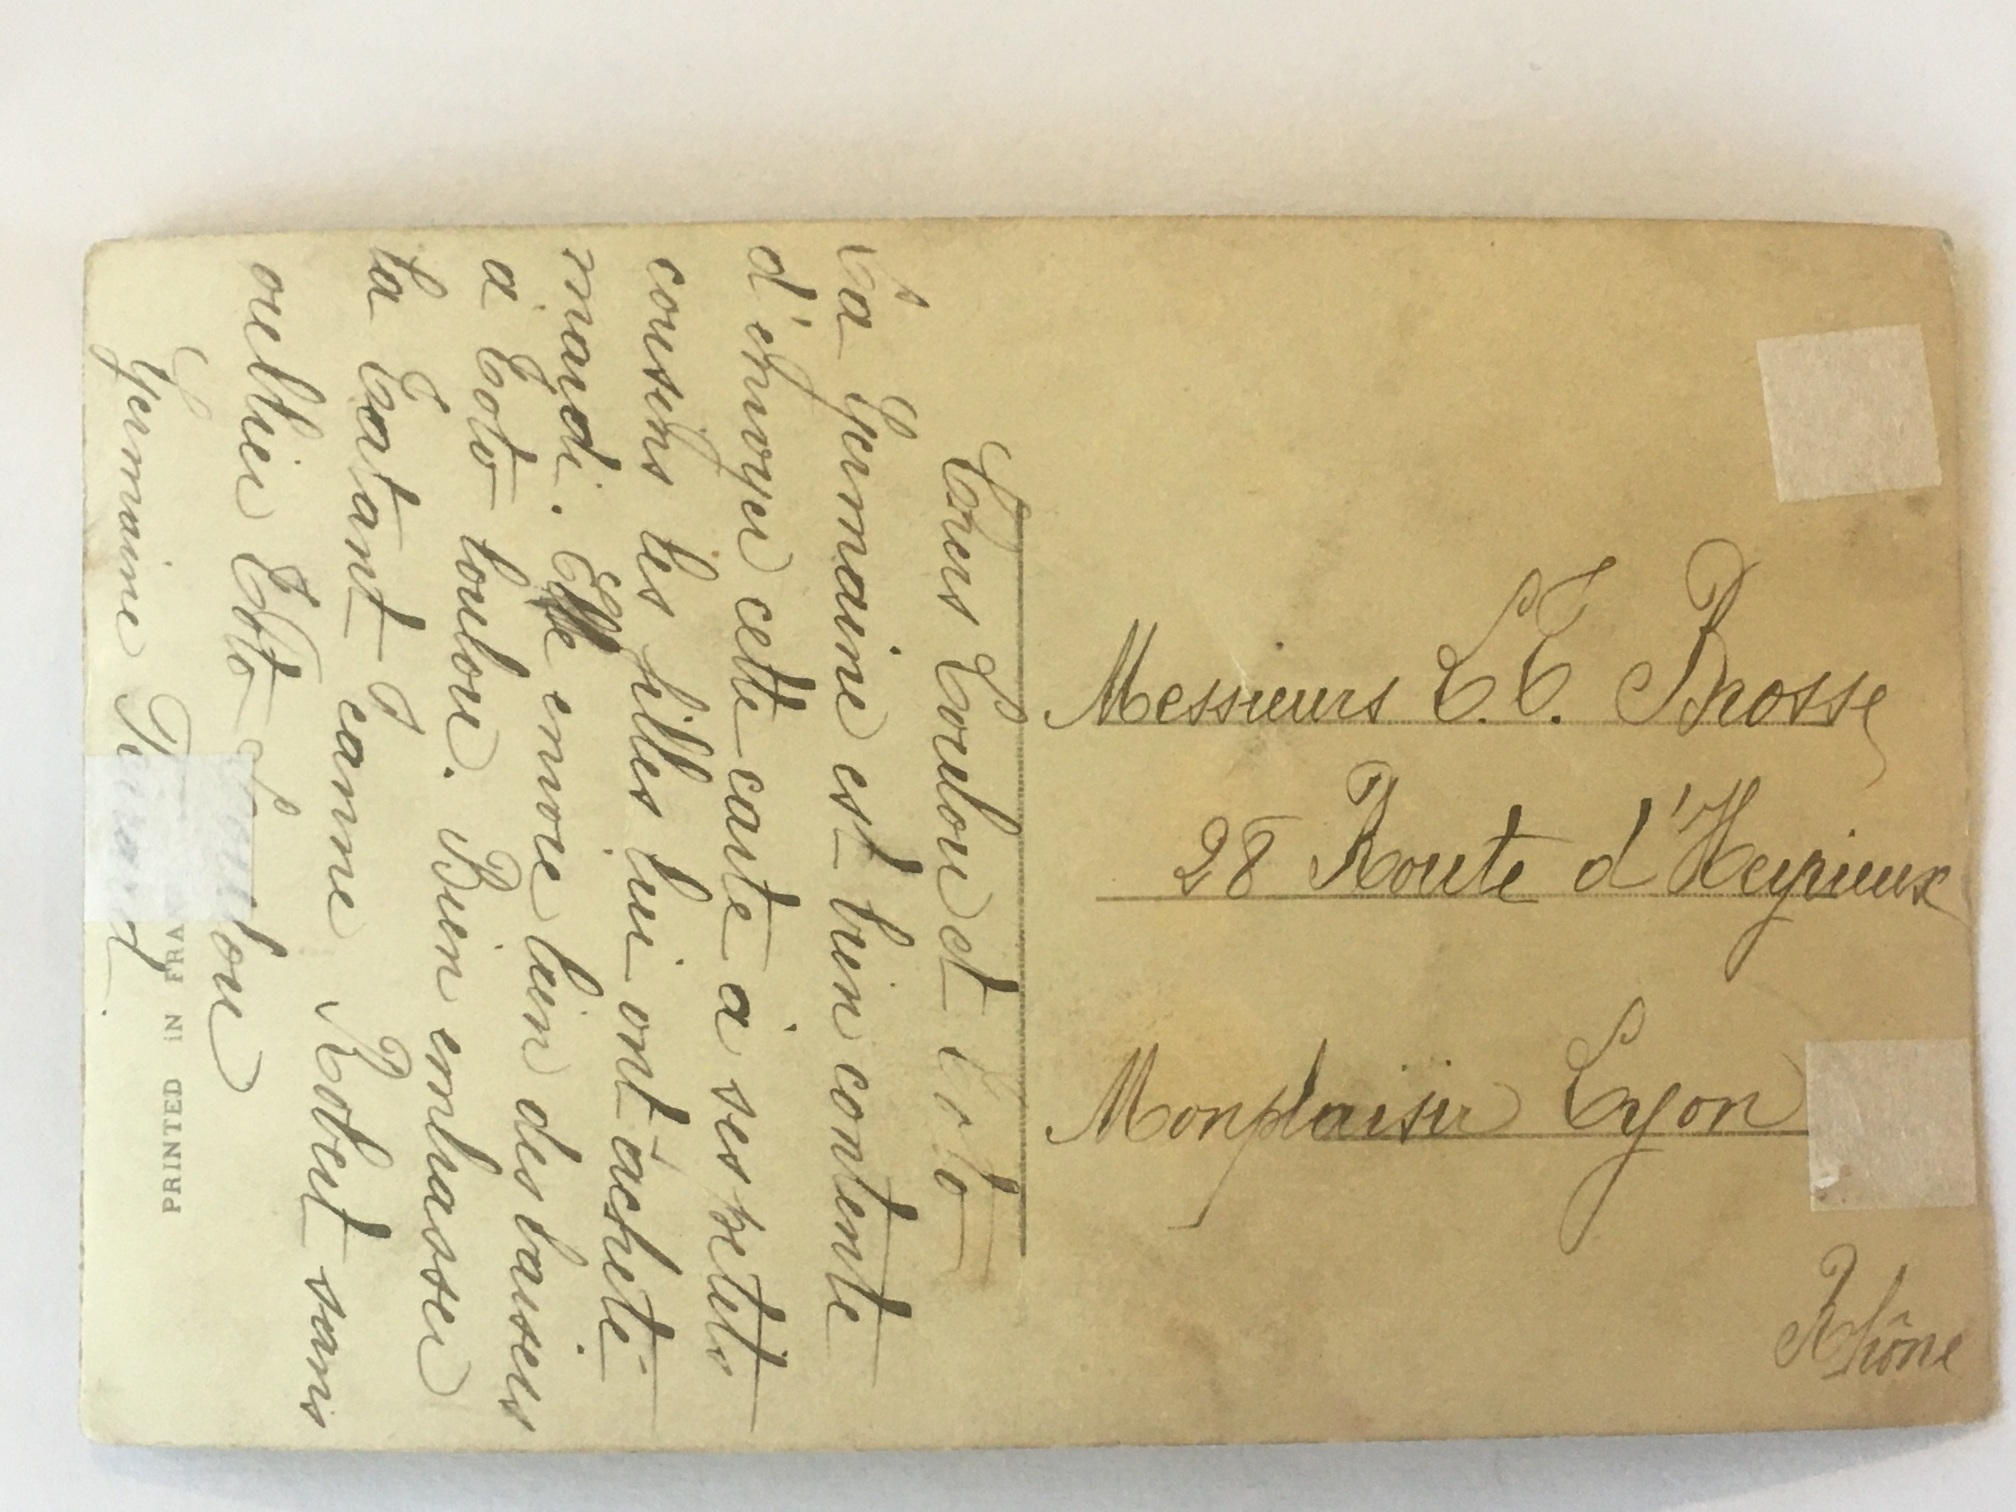 Chers Loulou et Toto
La Germaine est bien contente
d'envoyer cette carte à ses petits
cousins les filles lui ont acheté
mardi. Elle envoie bien des baisers
a Toto loulou. Bien embrasser
ta Tatant Jeanne Robert sans
oublier Toto Loulou
Germaine
PRINTED IN FRA
Messieurs L. T. Brosse
28 Route d'Heyrieux
Monplaisir Lyon
Rhône